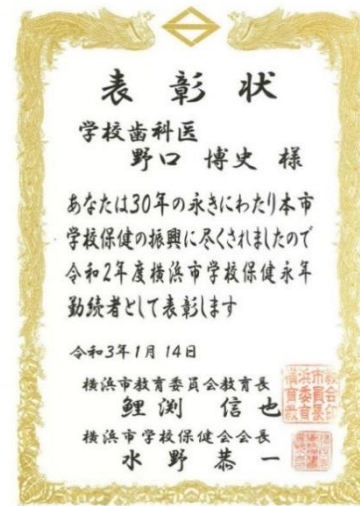 表彰状
学校歯科医
野口 博史 様
あなたは30年の永きにわたり本市
学校保健の振興に尽くされましたので
令和2年度横浜市学校保健永年
勤続者として表彰します
令和3年1月14日
横浜市教育委員会教育長
鯉渕 信也
横浜市学校保健会会長
水野 恭一